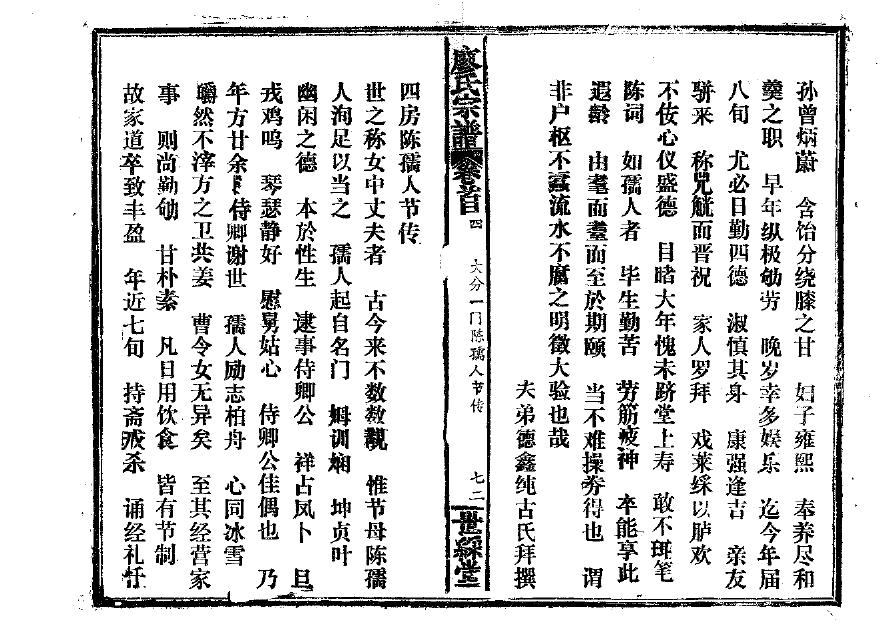 孙曾炳蔚 含饴分绕膝之甘 妇子雍熙 奉养尽和
羹之职 早年纵极劬劳 晚岁幸多娱乐 迄今年届
八旬 尤必日勤四德 淑慎其身 康强逢吉 亲友
骈来 称兕觥而晋祝 家人罗拜 戏莱综以胪欢
不佞心仪盛德 目睹大年愧未跻堂上寿 敢不珥笔
陈词 如孺人者 毕生勤苦 劳筋疲神 卒能享此
遐龄 由耄而耋而至於期颐 当不难操券得也 谓
非户枢不蠹流水不腐之明徵大验也哉
夫弟德鑫纯古氏拜撰
廖氏宗谱 卷首 四 大分一门陈孺人节传 七二 世綵堂
四房陈孺人节传
世之称女中丈夫者 古今来不数数觏 惟节母陈孺
人洵足以当之 孺人起自名门 姆训娴 坤贞叶
幽闲之德 本於性生 逮事侍卿公 祥占凤卜 旦
戎鸡鸣 琴瑟静好 慰舅姑心 侍卿公佳偶也 乃
年方廿余 侍卿谢世 孺人励志柏舟 心同冰雪
皭然不滓方之卫共姜 曹令女无异矣 至其经营家
事 则尚勤劬 甘朴素 凡日用饮食 皆有节制
故家道卒致丰盈 年近七旬 持斋戒杀 诵经礼忏